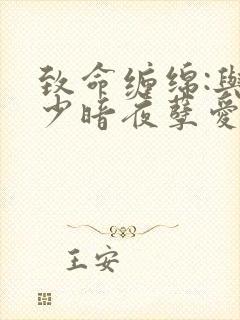 致命缠绵:与
少暗夜孽爱
王安